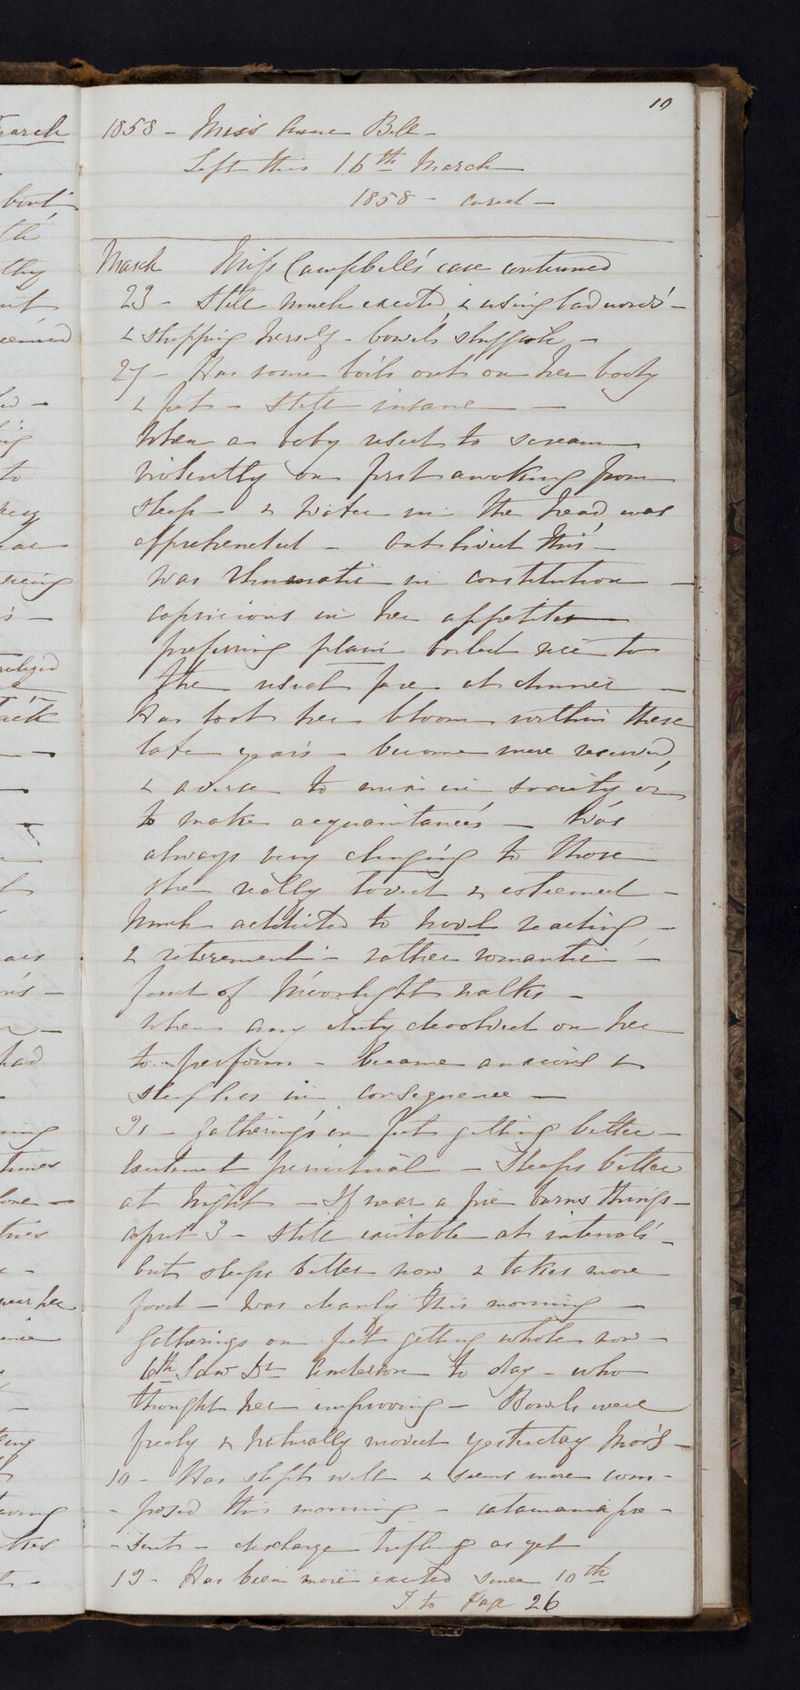 10
1858 - Miss Anne Bell -
Left this 16th March
1858 - cured -
March Miss Campbell's case continued
23 - Still much excited, & using bad words -
& stripping herself - bowels sluggish -
27 - Has some boils out on her body
& feet - still insane -
When a baby used to scream
violently on first awaking from
sleep & water in the head was
apprehended - outlived this -
was rheumatic in constitution -
capricious in her appetite
preferring plain boiled rice to
the usual fare at dinner -
Has lost her bloom within these
late years - become more reserved,
& averse to mix in society or
to make acquaintances - Was
always very clinging to those
she really loved & esteemed -
Much addicted to novel reading -
& retirement - rather romantic -
fond of moonlight walks -
When any duty devolved on her
to perform - became anxious &
sleepless in consequence -
31 - Gatherings on feet getting better -
Excitement - Sleeps better
at night - If near a fire burns things -
April 3 - Still excitable at intervals -
but sleeps better now & takes more
food - Was cleanly this morning -
Gatherings on feet getting whole now -
6th Saw Dr Anderson to day - who
thought her improving - Bowels were
freely & naturally moved yesterday
10 - Has slept well & seems more com-
- posed this morning - catamenia pre-
- sent - discharge trifling as yet
13 - Has been more excited since 10th
T. to Page 26